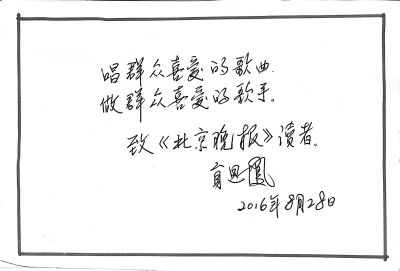 唱群众喜爱的歌曲.
做群众喜爱的歌手。
致《北京晚报》读者.
2016年8月28日